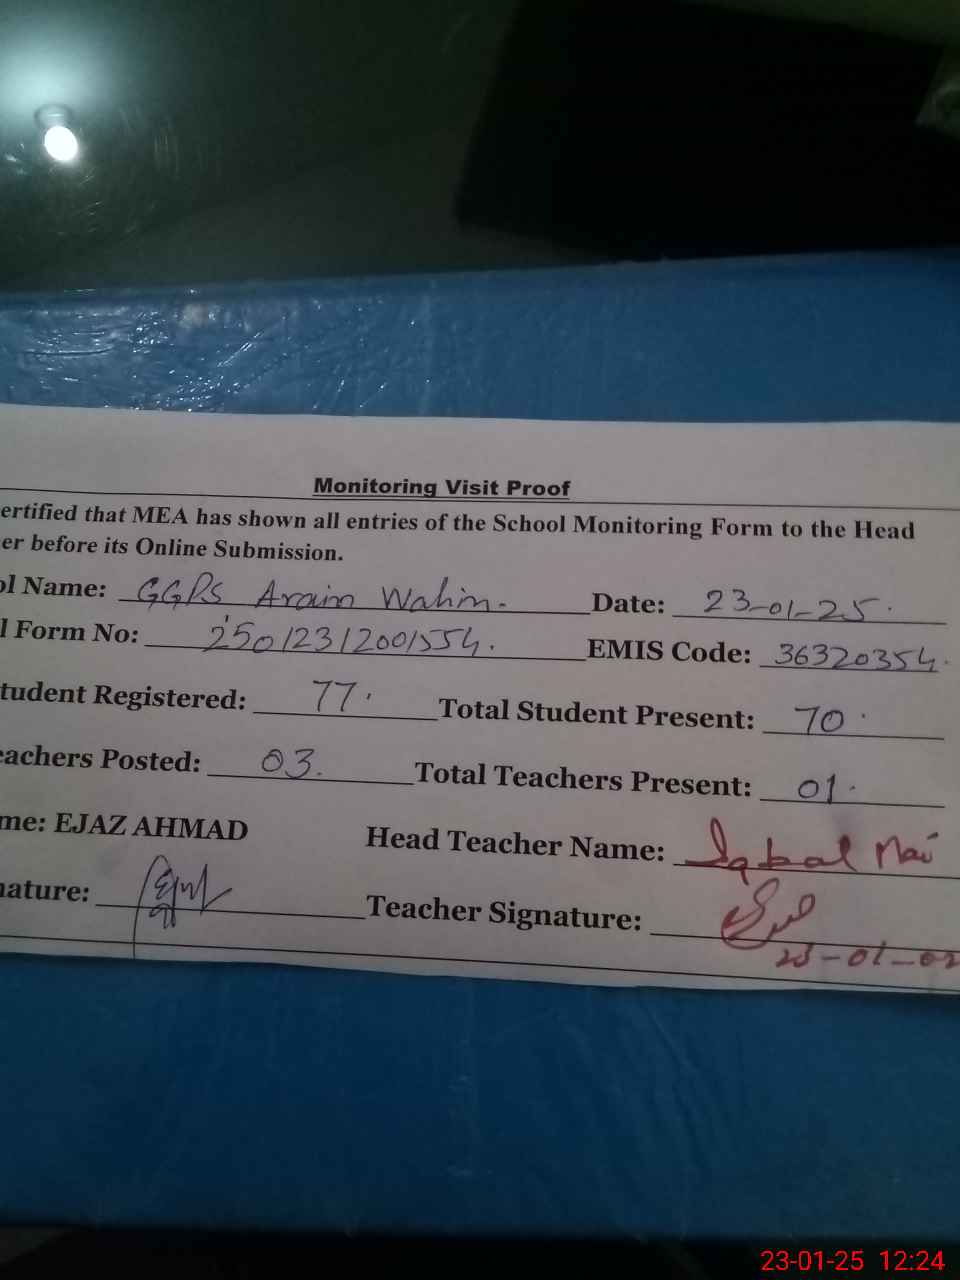 Monitoring Visit Proof
ertified that MEA has shown all entries of the School Monitoring Form to the Head
er before its Online Submission.
ol Name: GGPS Arain Wahin. Date: 23-01-25.
l Form No: 25012312001554. EMIS Code: 36320354.
tudent Registered: 77. Total Student Present: 70.
eachers Posted: 03. Total Teachers Present: 01.
me: EJAZ AHMAD Head Teacher Name: Iqbal Mai
nature: Teacher Signature:
23-01-25 12:24